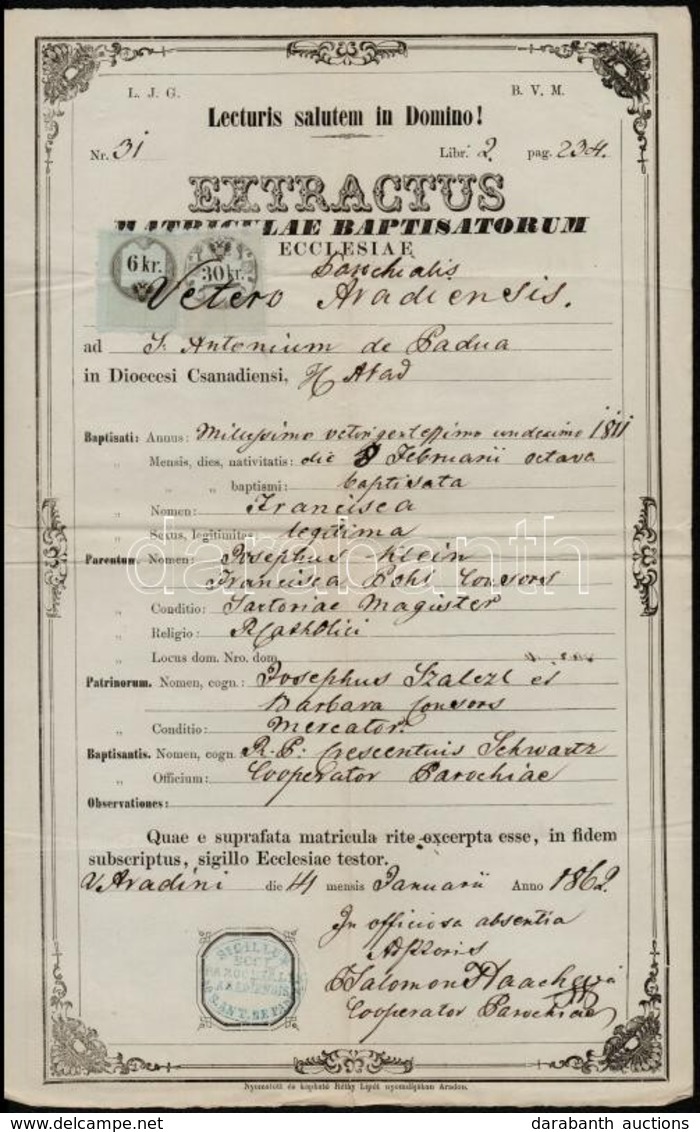 L. J. G. B. V. M.
Lecturis salutem in Domino!
Nr. 31 Libr. 2. pag. 234.
EXTRACTUS
MATRICULAE BAPTISATORUM
ECCLESIAE
6 kr. 30 kr. Parochialis
Vetero Aradiensis.
ad S. Antonium de Padua
in Dioecesi Csanadiensi, Arad
Baptisati: Annus: 1811
„ Mensis, dies, nativitatis: die 8 Februarii octava
„ „ baptismi: baptisata
„ Nomen: Francisca
„ Sexus, legitimitas: legitima
Parentum. Nomen: Josephus Klein
Francisca Pohl Consors
„ Conditio: Sartoriae Magister
„ Religio: R Catholici
„ Locus dom. Nro. dom.
Patrinorum. Nomen, cogn.: Josephus Szalezl et
Barbara Consors
„ Conditio: Mercator.
Baptisantis. Nomen, cogn. R. P. Crescentius Schwartz
„ Officium: Cooperator Parochiae
Observationes:
Quae e suprafata matricula rite excerpta esse, in fidem
subscriptus, sigillo Ecclesiae testor.
V. Aradini die 14 mensis Januarii Anno 1862.
In officiosa absentia
Salomon
Cooperator Parochiae
SIGILLUM
Nyomatott és kapható Réthy Lipót nyomdájában Aradon.
darabanth
darabanth auctions
www.darabanth.com